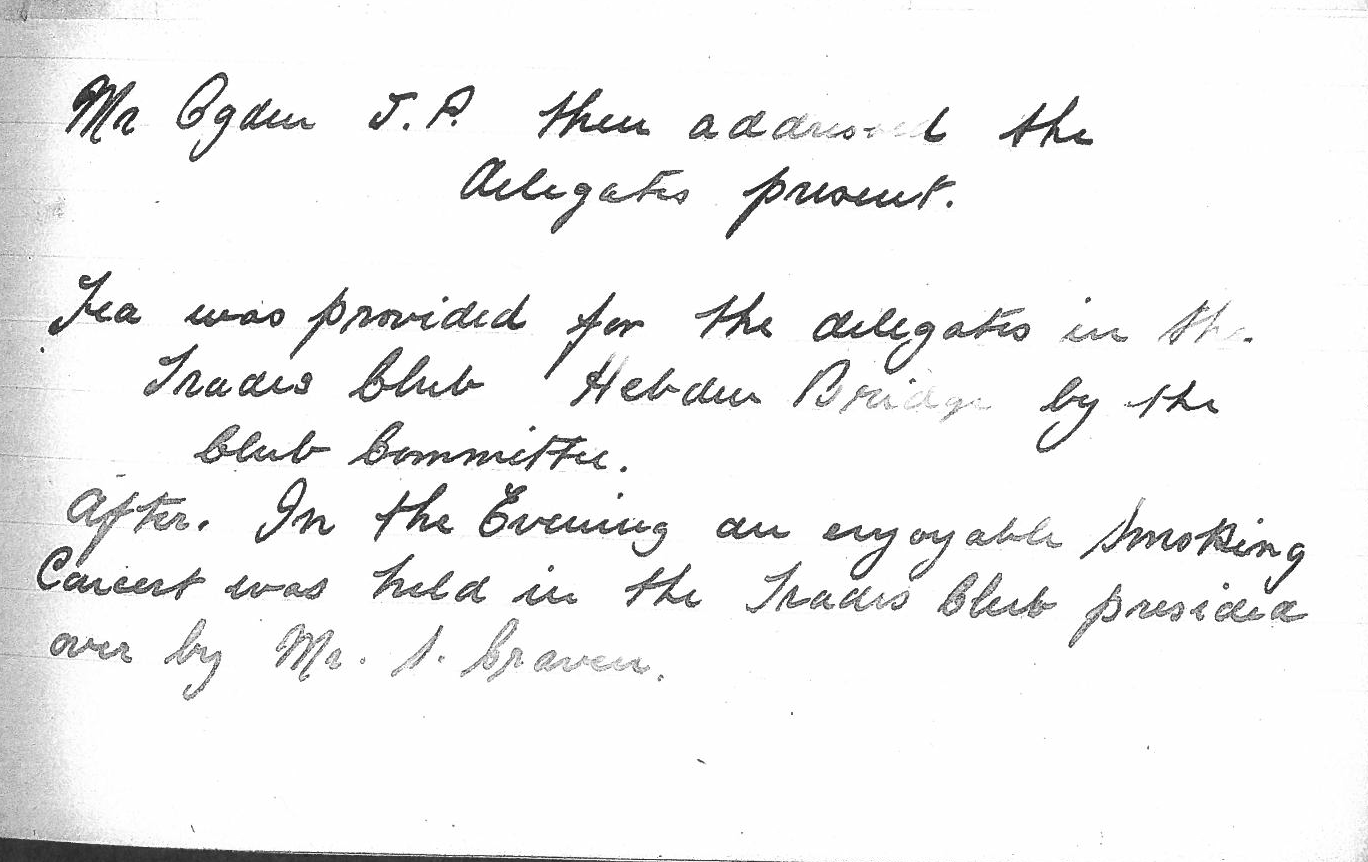 Mr Ogden J.P. then addressed the
delegates present.
Tea was provided for the delegates in the
Trades Club Hebden Bridge by the
Club Committee.
After. In the Evening an enjoyable Smoking
Concert was held in the Trades Club presided
over by Mr. S. Craven.